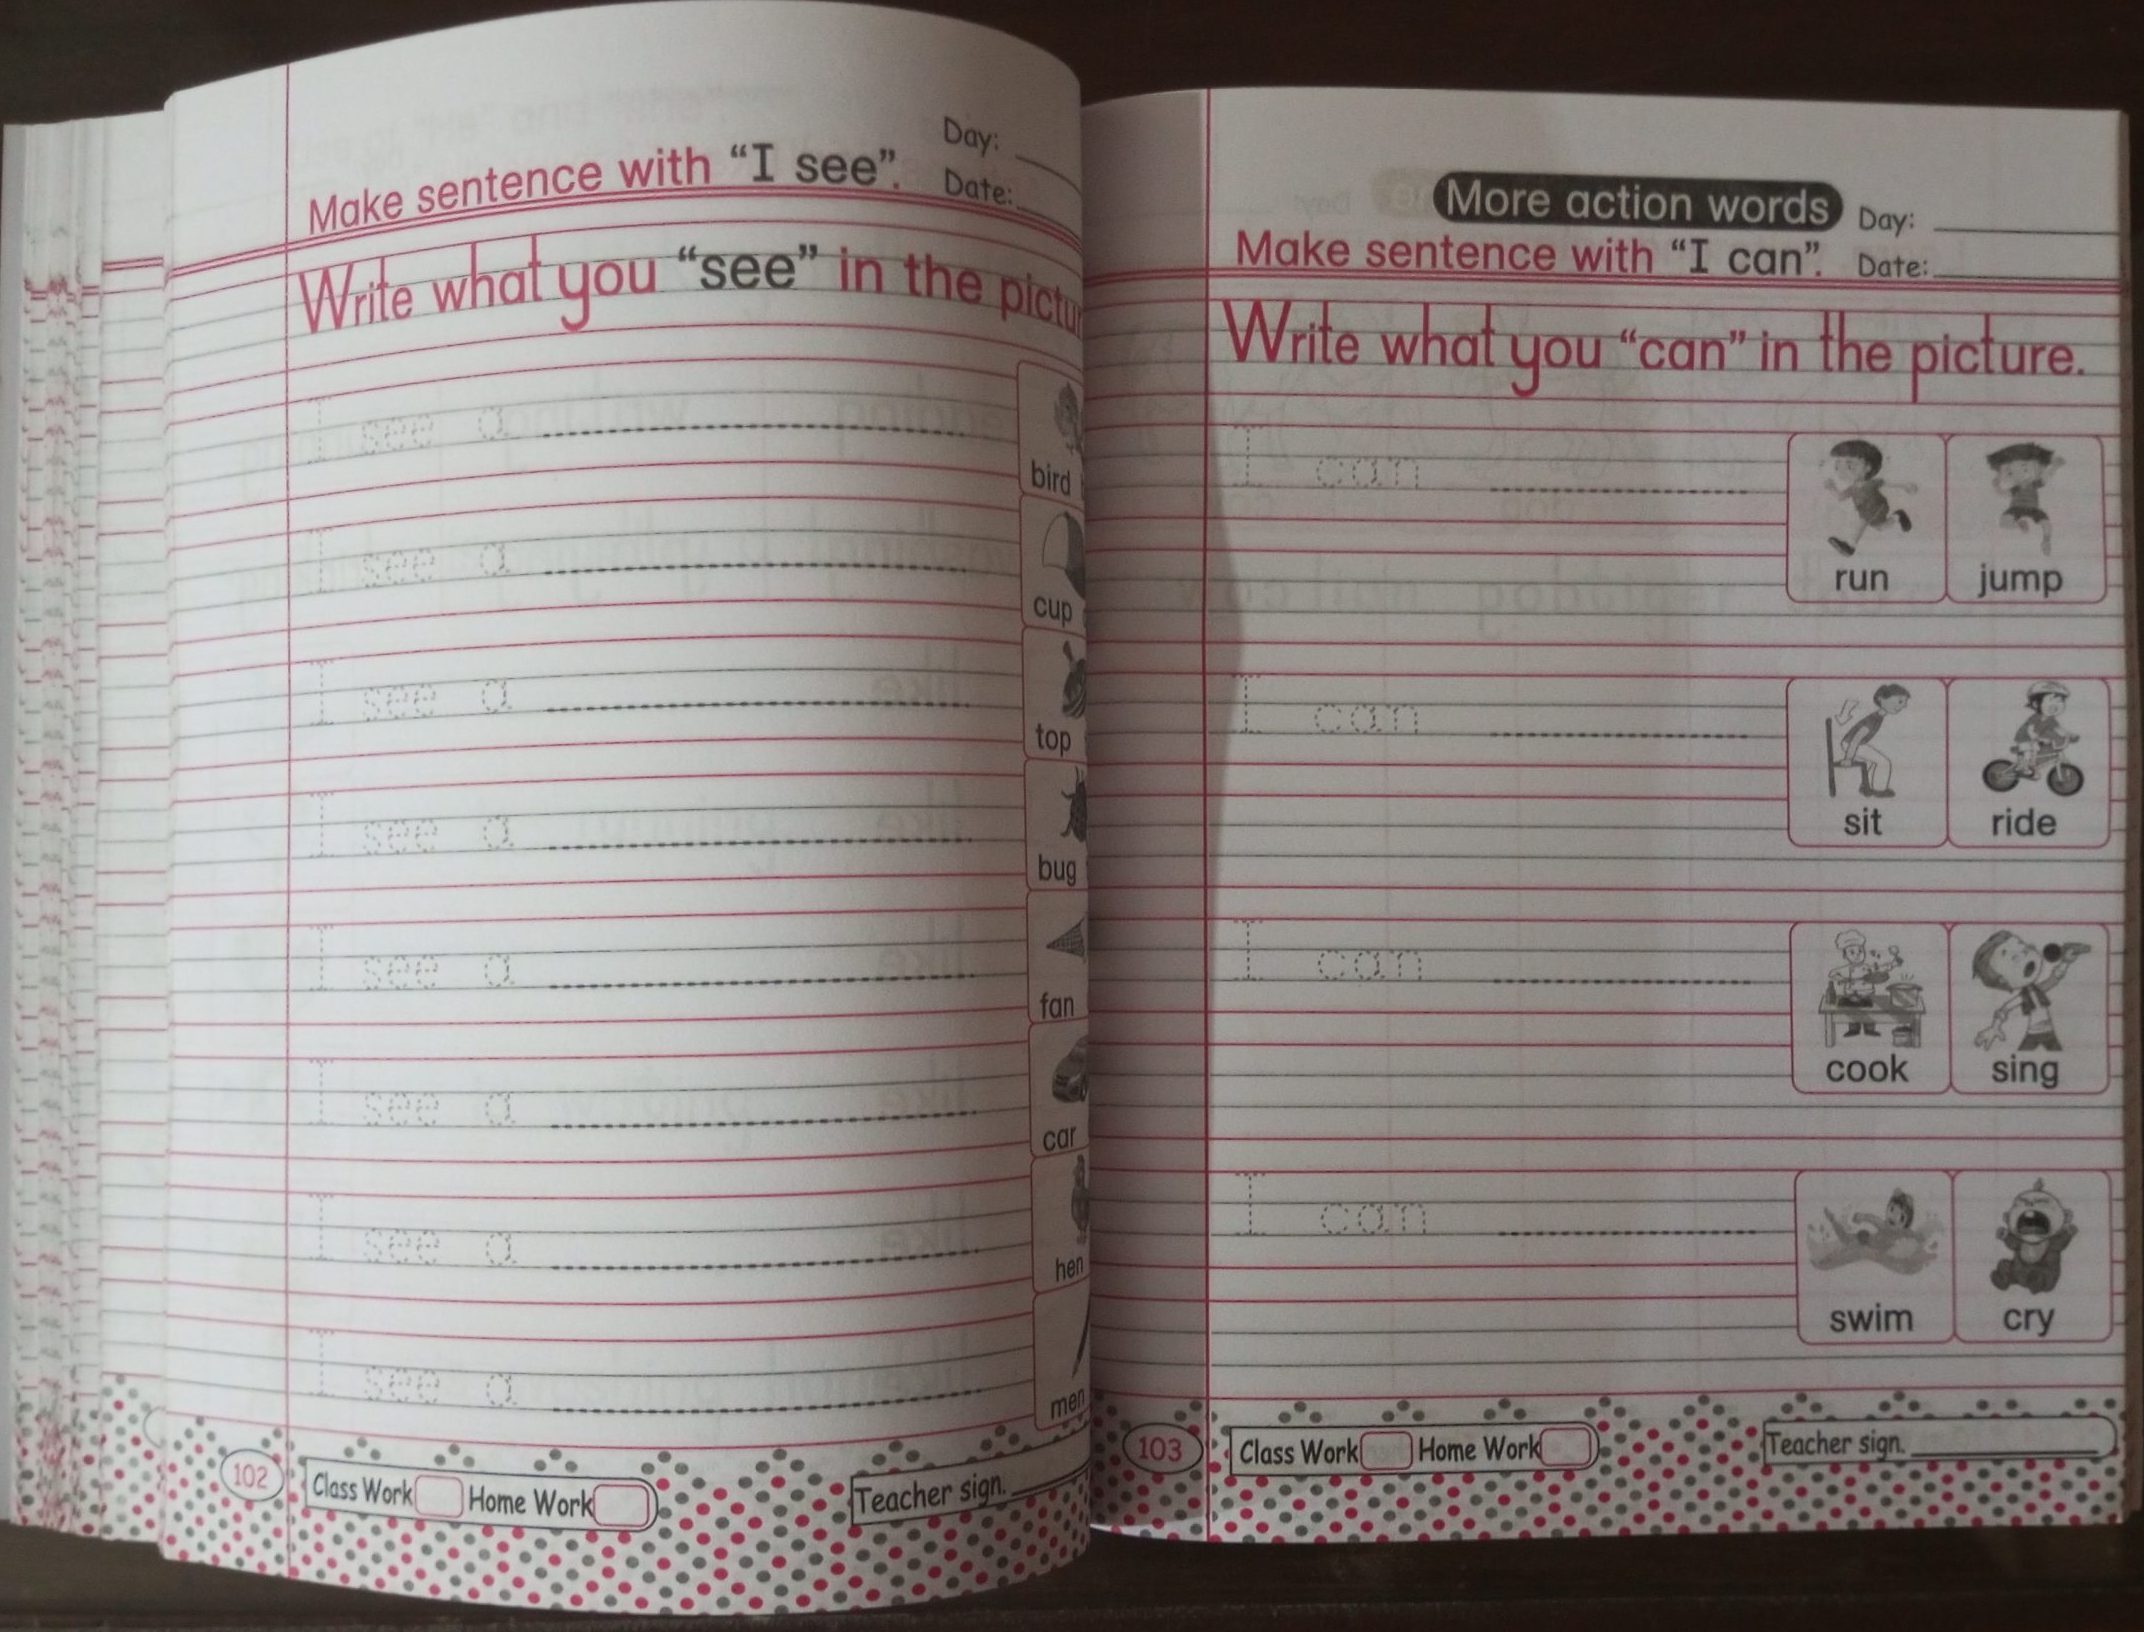 Day:
Make sentence with “I see”. Date:
Write what you “see” in the pictur
I see a
bird
I see a
cup
I see a
top
I see a
bug
I see a
fan
I see a
car
I see a
hen
I see a
men
102 Class Work Home Work Teacher sign.
More action words Day:
Make sentence with “I can”. Date:
Write what you “can” in the picture.
I can
run jump
I can
sit ride
I can
cook sing
I can
swim cry
103 Class Work Home Work Teacher sign.